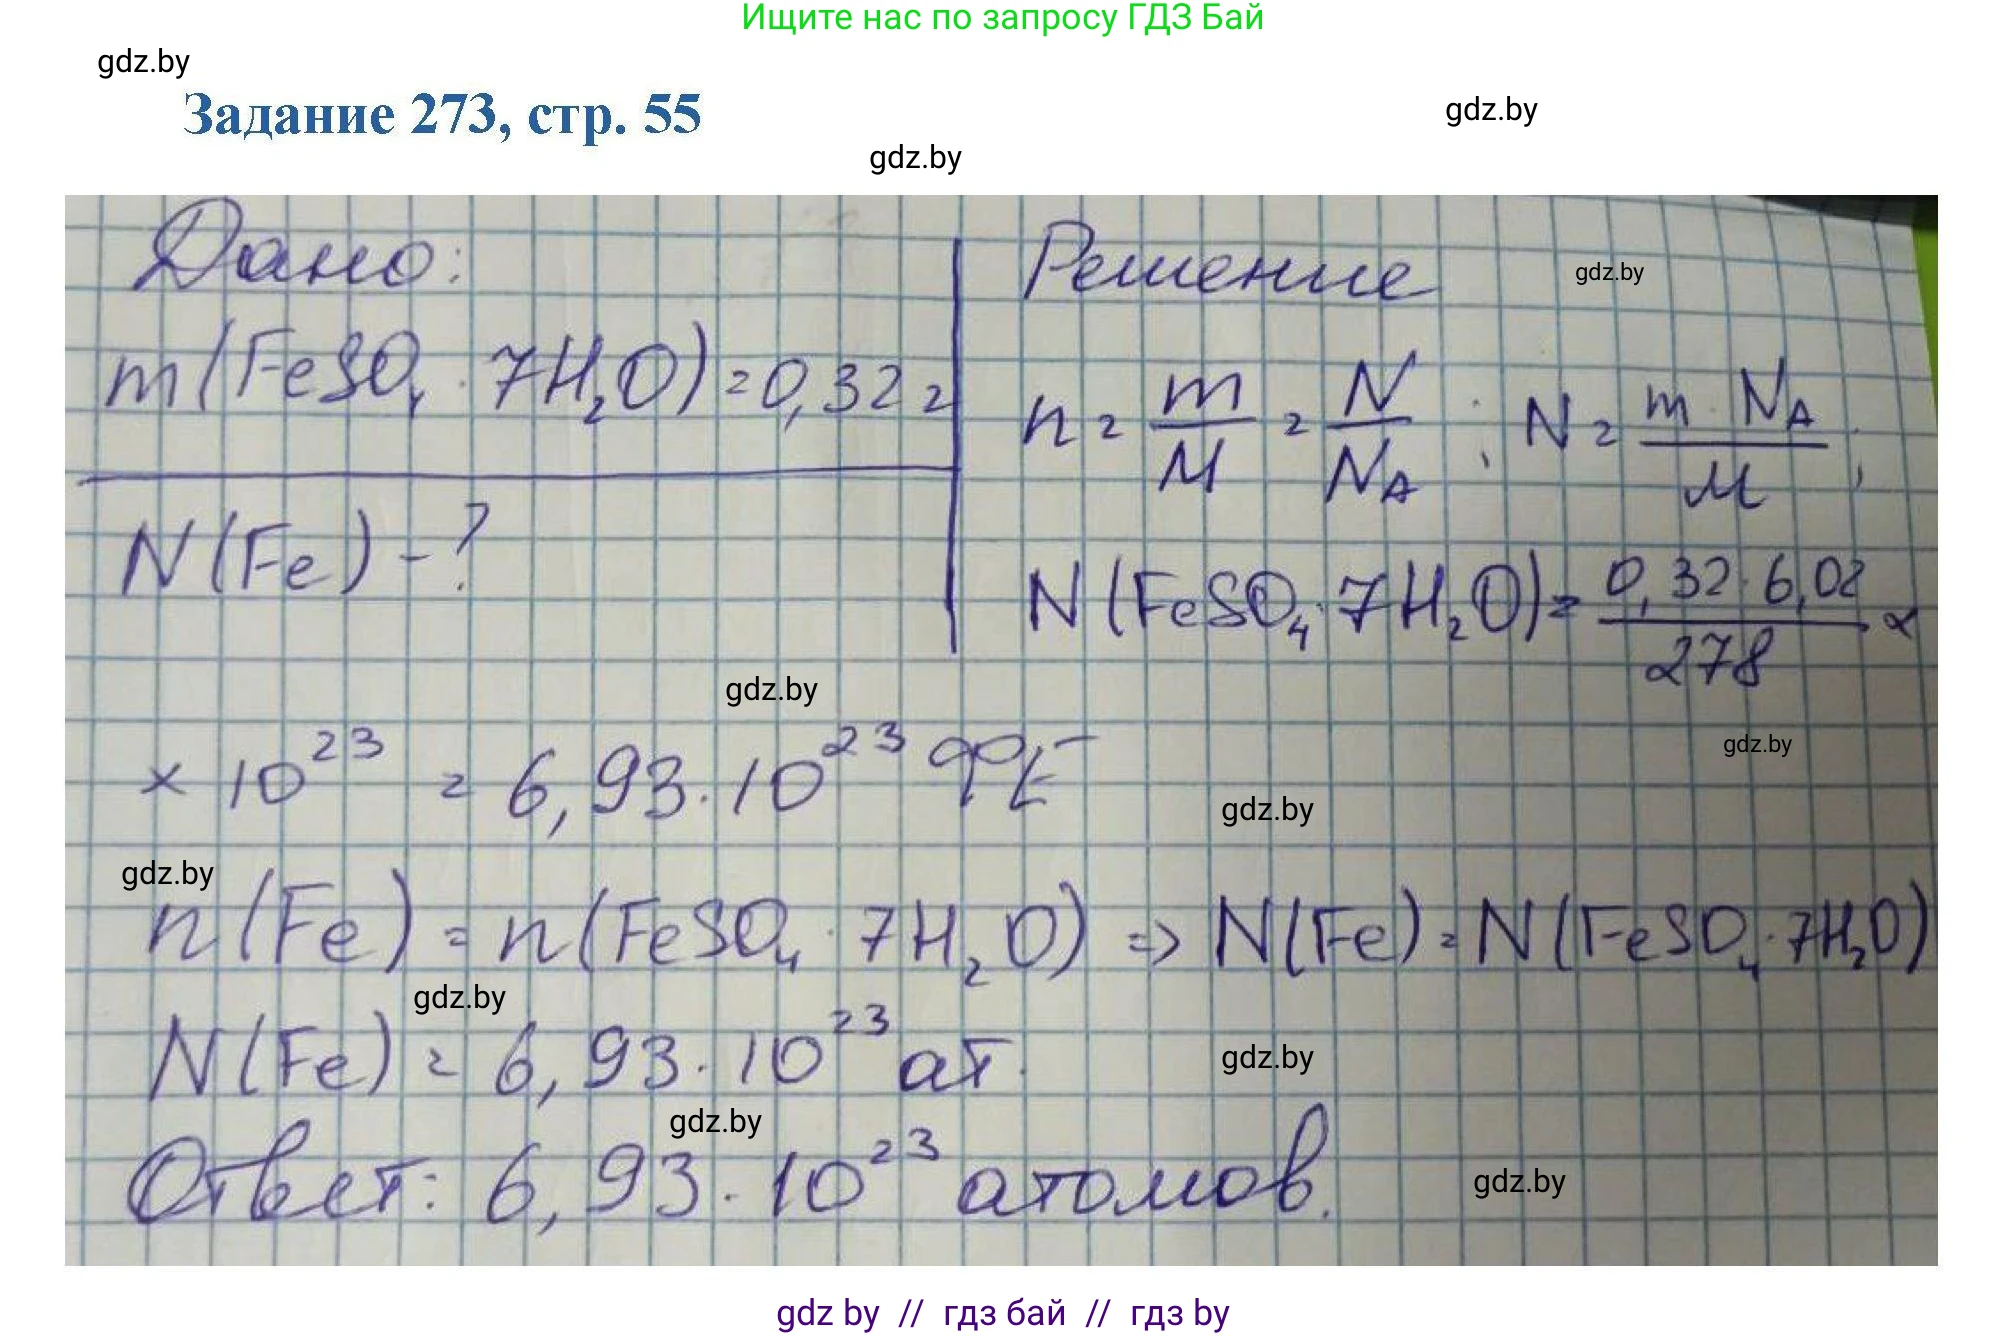 Ищите нас по запросу ГДЗ Бай
gdz.by
Задание 273, стр. 55
gdz.by
gdz.by
Дано:
m(FeSO4 · 7H2O) = 0,32 г
N(Fe) - ?
Решение
gdz.by
n = m/M = N/NA ; N = m · NA/M ;
N(FeSO4 · 7H2O) = 0,32 · 6,02/278 ×
gdz.by
× 10^23 = 6,93 · 10^23 ФЕ
gdz.by
gdz.by
gdz.by
n(Fe) = n(FeSO4 · 7H2O) => N(Fe) = N(FeSO4 · 7H2O)
gdz.by
N(Fe) = 6,93 · 10^23 ат.
gdz.by
gdz.by
Ответ: 6,93 · 10^23 атомов.
gdz.by
gdz by // гдз бай // гдз by